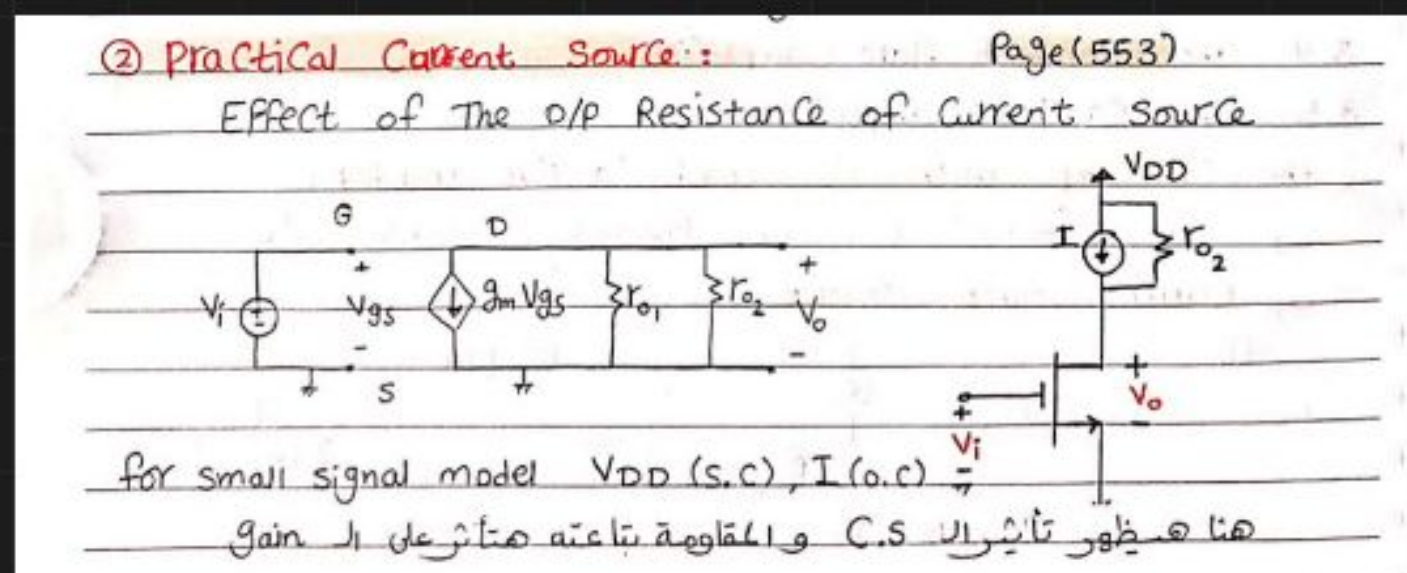 ② Practical Current Source: Page (553)
Effect of The O/P Resistance of Current Source
VDD
G D I ro2
+ + 
Vi Vgs gm Vgs ro1 ro2 Vo
- -
S + Vo -
+ Vi -
for small signal model VDD (S.C), I (O.C)
هنا هيظهر تأثير ال C.S والمقاومة بتاعته هتأثر على ال gain